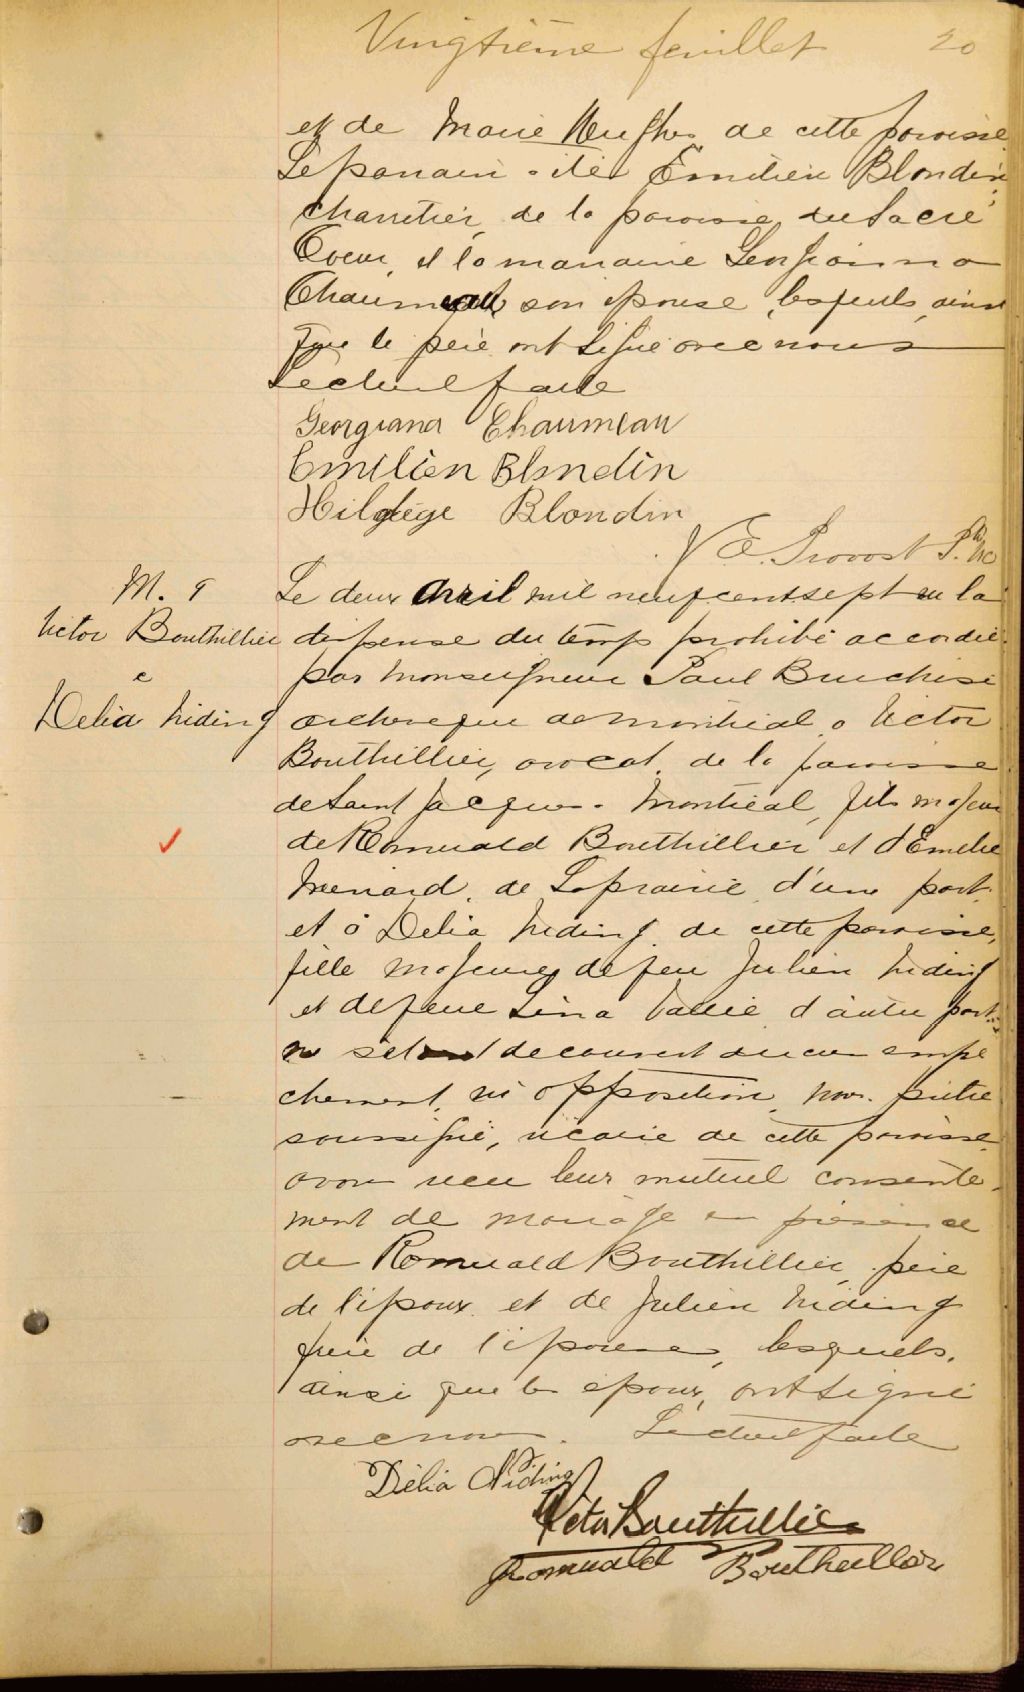 Vingtième feuillet 20
et de Marie Hughes de cette paroisse.
Le parrain a été Emilien Blondin,
charretier, de la paroisse du Sacré
Coeur, et la marraine Georgianna
Chaumeau, son épouse, lesquels, ainsi
que le père ont signé avec nous
Lecture faite
Georgiana Chaumeau
Emilien Blondin
Hildège Blondin
Provost
M. 9
Victor Bouthillier
e
Delia Niding
Le deux Avril mil neuf cent sept vu la
dispense du temps prohibé accordée
par Monseigneur Paul Bruchési
archevêque de Montréal à Victor
Bouthillier, avocat, de la paroisse
de Saint Jacques - Montréal, fils majeur
de Romuald Bouthillier et d'Emelie
Menard, de Laprairie d'une part,
et à Delia Niding de cette paroisse,
fille majeure de feu Julien Niding
et de feue Lina Vallée d'autre part
ne s'étant découvert aucun empê
chement, ni opposition, nous prêtre
soussigné, vicaire de cette paroisse
avons reçu leur mutuel consente-
ment de mariage en présence
de Romuald Bouthillier, père
de l'époux et de Julien Niding
frère de l'épouse, lesquels,
ainsi que les époux, ont signé
avec nous. Lecture faite
Délia Niding
Victor Bouthillier
Romuald Bouthillier